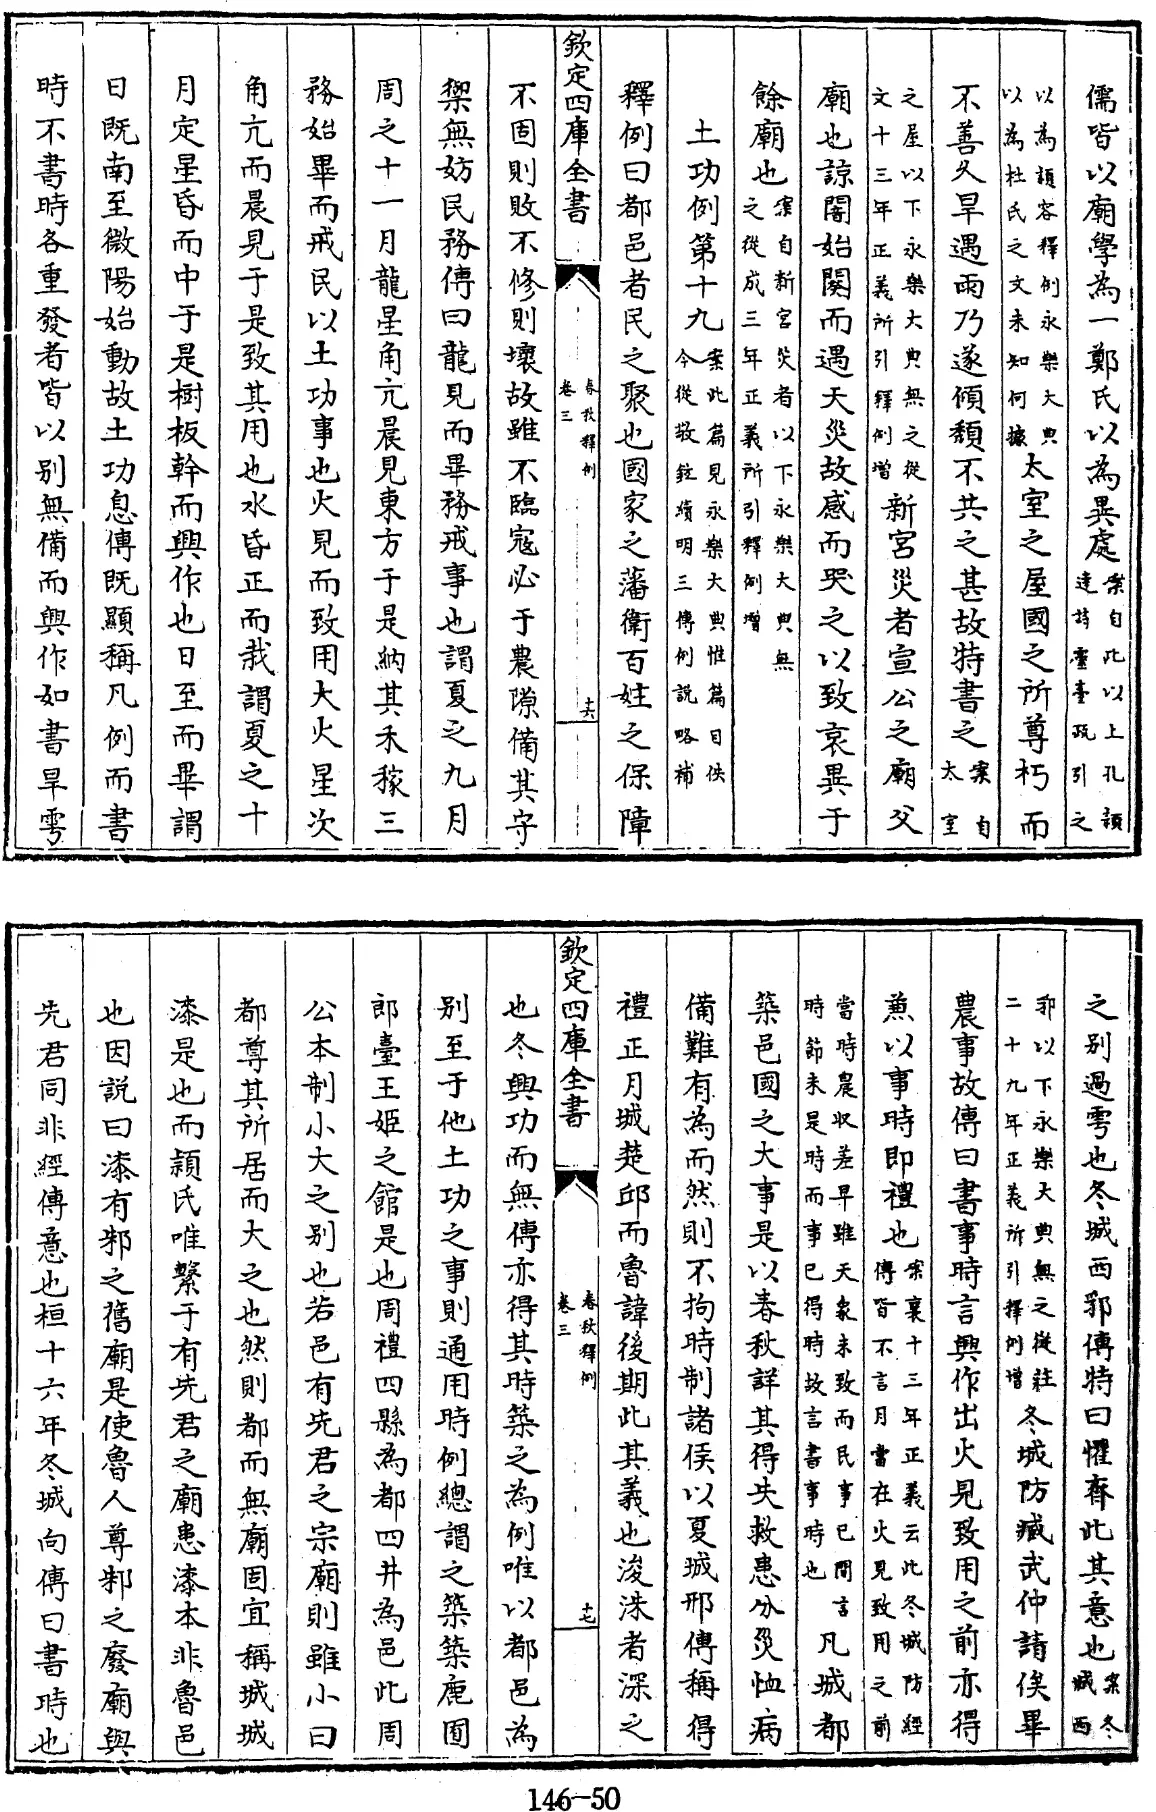 儒皆以廟學為一鄭氏以為異處案自此以上孔穎達詩靈臺疏引之
以為穎容釋例永樂大典以為杜氏之文未知何據太室之屋國之所尊朽而
不善久旱遇雨乃遂傾頹不共之甚故特書之案自太室
之屋以下永樂大典無之從文十三年正義所引釋例增新宮災者宣公之廟父
廟也諒闇始闋而遇天災故感而哭之以致哀異于
餘廟也案自新宮災者以下永樂大典無之從成三年正義所引釋例增
土功例第十九案此篇見永樂大典惟篇目佚今從敬鉉續明三傳例説略補
釋例曰都邑者民之聚也國家之藩衛百姓之保障
欽定四庫全書
春秋釋例
卷三
十六
不固則敗不修則壞故雖不臨寇必于農隙備其守
禦無妨民務傳曰龍見而畢務戒事也謂夏之九月
周之十一月龍星角亢晨見東方于是納其禾稼三
務始畢而戒民以土功事也火見而致用大火星次
角亢而晨見于是致其用也水昏正而栽謂夏之十
月定星昏而中于是樹板幹而興作也日至而畢謂
日既南至微陽始動故土功息傳既顯稱凡例而書
時不書時各重發者皆以別無備而興作如書旱雩
之別過雩也冬城西郛傳特曰懼齊此其意也案冬城西
郛以下永樂大典無之從註二十九年正義所引釋例增冬城防臧武仲請俟畢
農事故傳曰書事時言興作出火見致用之前亦得
兼以事時即禮也案襄十三年正義云此冬城防經傳皆不言月當在火見致用之前
當時農收差早雖天象未致而民事已間言時節未是時而事已得時故言書事時也凡城都
築邑國之大事是以春秋詳其得失救患分災恤病
備難有為而然則不拘時制諸侯以夏城邢傳稱得
禮正月城楚邱而魯諱後期此其義也浚洙者深之
欽定四庫全書
春秋釋例
卷三
十七
也冬興功而無傳亦得其時築之為例唯以都邑為
別至于他土功之事則通用時例總謂之築築鹿囿
郎臺王姬之館是也周禮四縣為都四井為邑此周
公本制小大之別也若邑有先君之宗廟則雖小曰
都尊其所居而大之也然則都而無廟固宜稱城城
漆是也而頴氏唯繫于有先君之廟患漆本非魯邑
也因説曰漆有邾之舊廟是使魯人尊邾之廢廟與
先君同非經傳意也桓十六年冬城向傳曰書時也
146-50